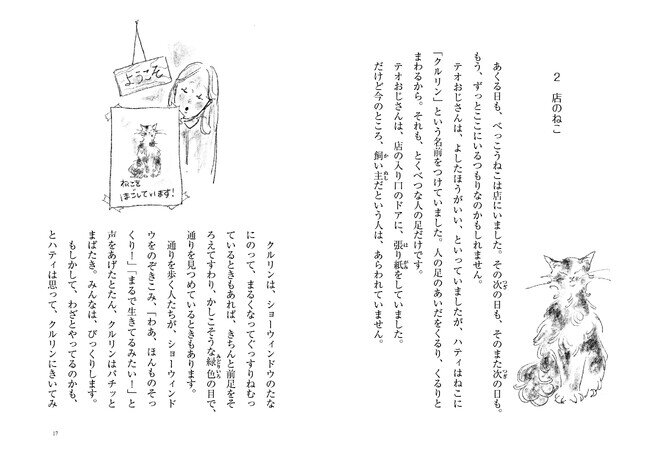 2 店のねこ
あくる日も、べっこうねこは店にいました。その次の日も、そのまた次の日も。
もう、ずっとここにいるつもりなのかもしれません。
テオおじさんは、よしたほうがいい、といっていましたが、ハティはねこに
「クルリン」という名前をつけていました。人の足のあいだをくるり、くるりと
まわるから。それも、とくべつな人の足だけです。
テオおじさんは、店の入り口のドアに、張り紙をしていました。
だけど今のところ、飼い主だという人は、あらわれていません。
ようこそ
ねこを
ほごしています!
クルリンは、ショーウィンドウのたな
にのって、まるくなってぐっすりねむっ
ているときもあれば、きちんと前足をそ
ろえてすわり、かしこそうな緑色の目で、
通りを見つめているときもあります。
通りを歩く人たちが、ショーウィンド
ウをのぞきこみ、「わあ、ほんものそっ
くり!」「まるで生きてるみたい!」と
声をあげたとたん、クルリンはパチッと
まばたき。みんなは、びっくりします。
もしかして、わざとやってるのかも、
とハティは思って、クルリンにきいてみ
17